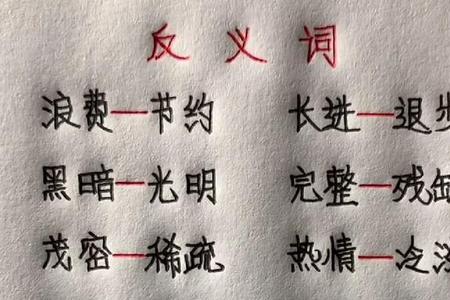 反义词
浪费—节约 长进—退步
黑暗—光明 完整—残缺
茂密—稀疏 热情—冷